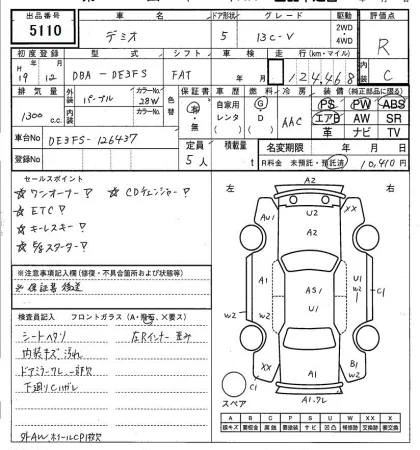 出品番号 車名 ドア形状 グレード 駆動 評価点
5110 デミオ 5 13C-V 2WD・4WD R
初度登録 型式 シフト 車検 走行(km・マイル) 内装 C
H19 12 DBA-DE3FS FAT 年 月 124,468
排気量 外装 カラーNo. 内装 カラーNo. 色替 保証書 車歴 燃料 冷房 装備(純正部品に限る)
1300 c.c. パープル 28W 有・無 自家用 レンタ G D AAC PS PW ABS
エアB AW SR
革 ナビ TV
車台No DE3FS-126437
定員 5人 積載量 t 名変期限 年 月 日
登録No R料金 未預託・預託済 10,410円
セールスポイント
☆ワンオーナー ☆CDチェンジャー
☆ETC
☆キーレスキー
左 右
A2
AU1 U2 XX
A2
A1 AS1 U1 U1 W2 C1
W2 W2
XX B1 W2
A1
C1 スペア A1.ワレ
※注意事項記入欄(修復・不具合箇所および状態等)
※保証書後送
検査員記入 フロントガラス(A・飛石、X要ス)
シートヘタリ 左Rインナー歪み
内装キズ汚れ
ドアミラーワレ一部欠
下廻りCIガレ
外AW
A B C P S U W XX X
線キズ 要板金 腐蝕 要塗装 サビ 凹凸 補修跡 交換跡 要交換